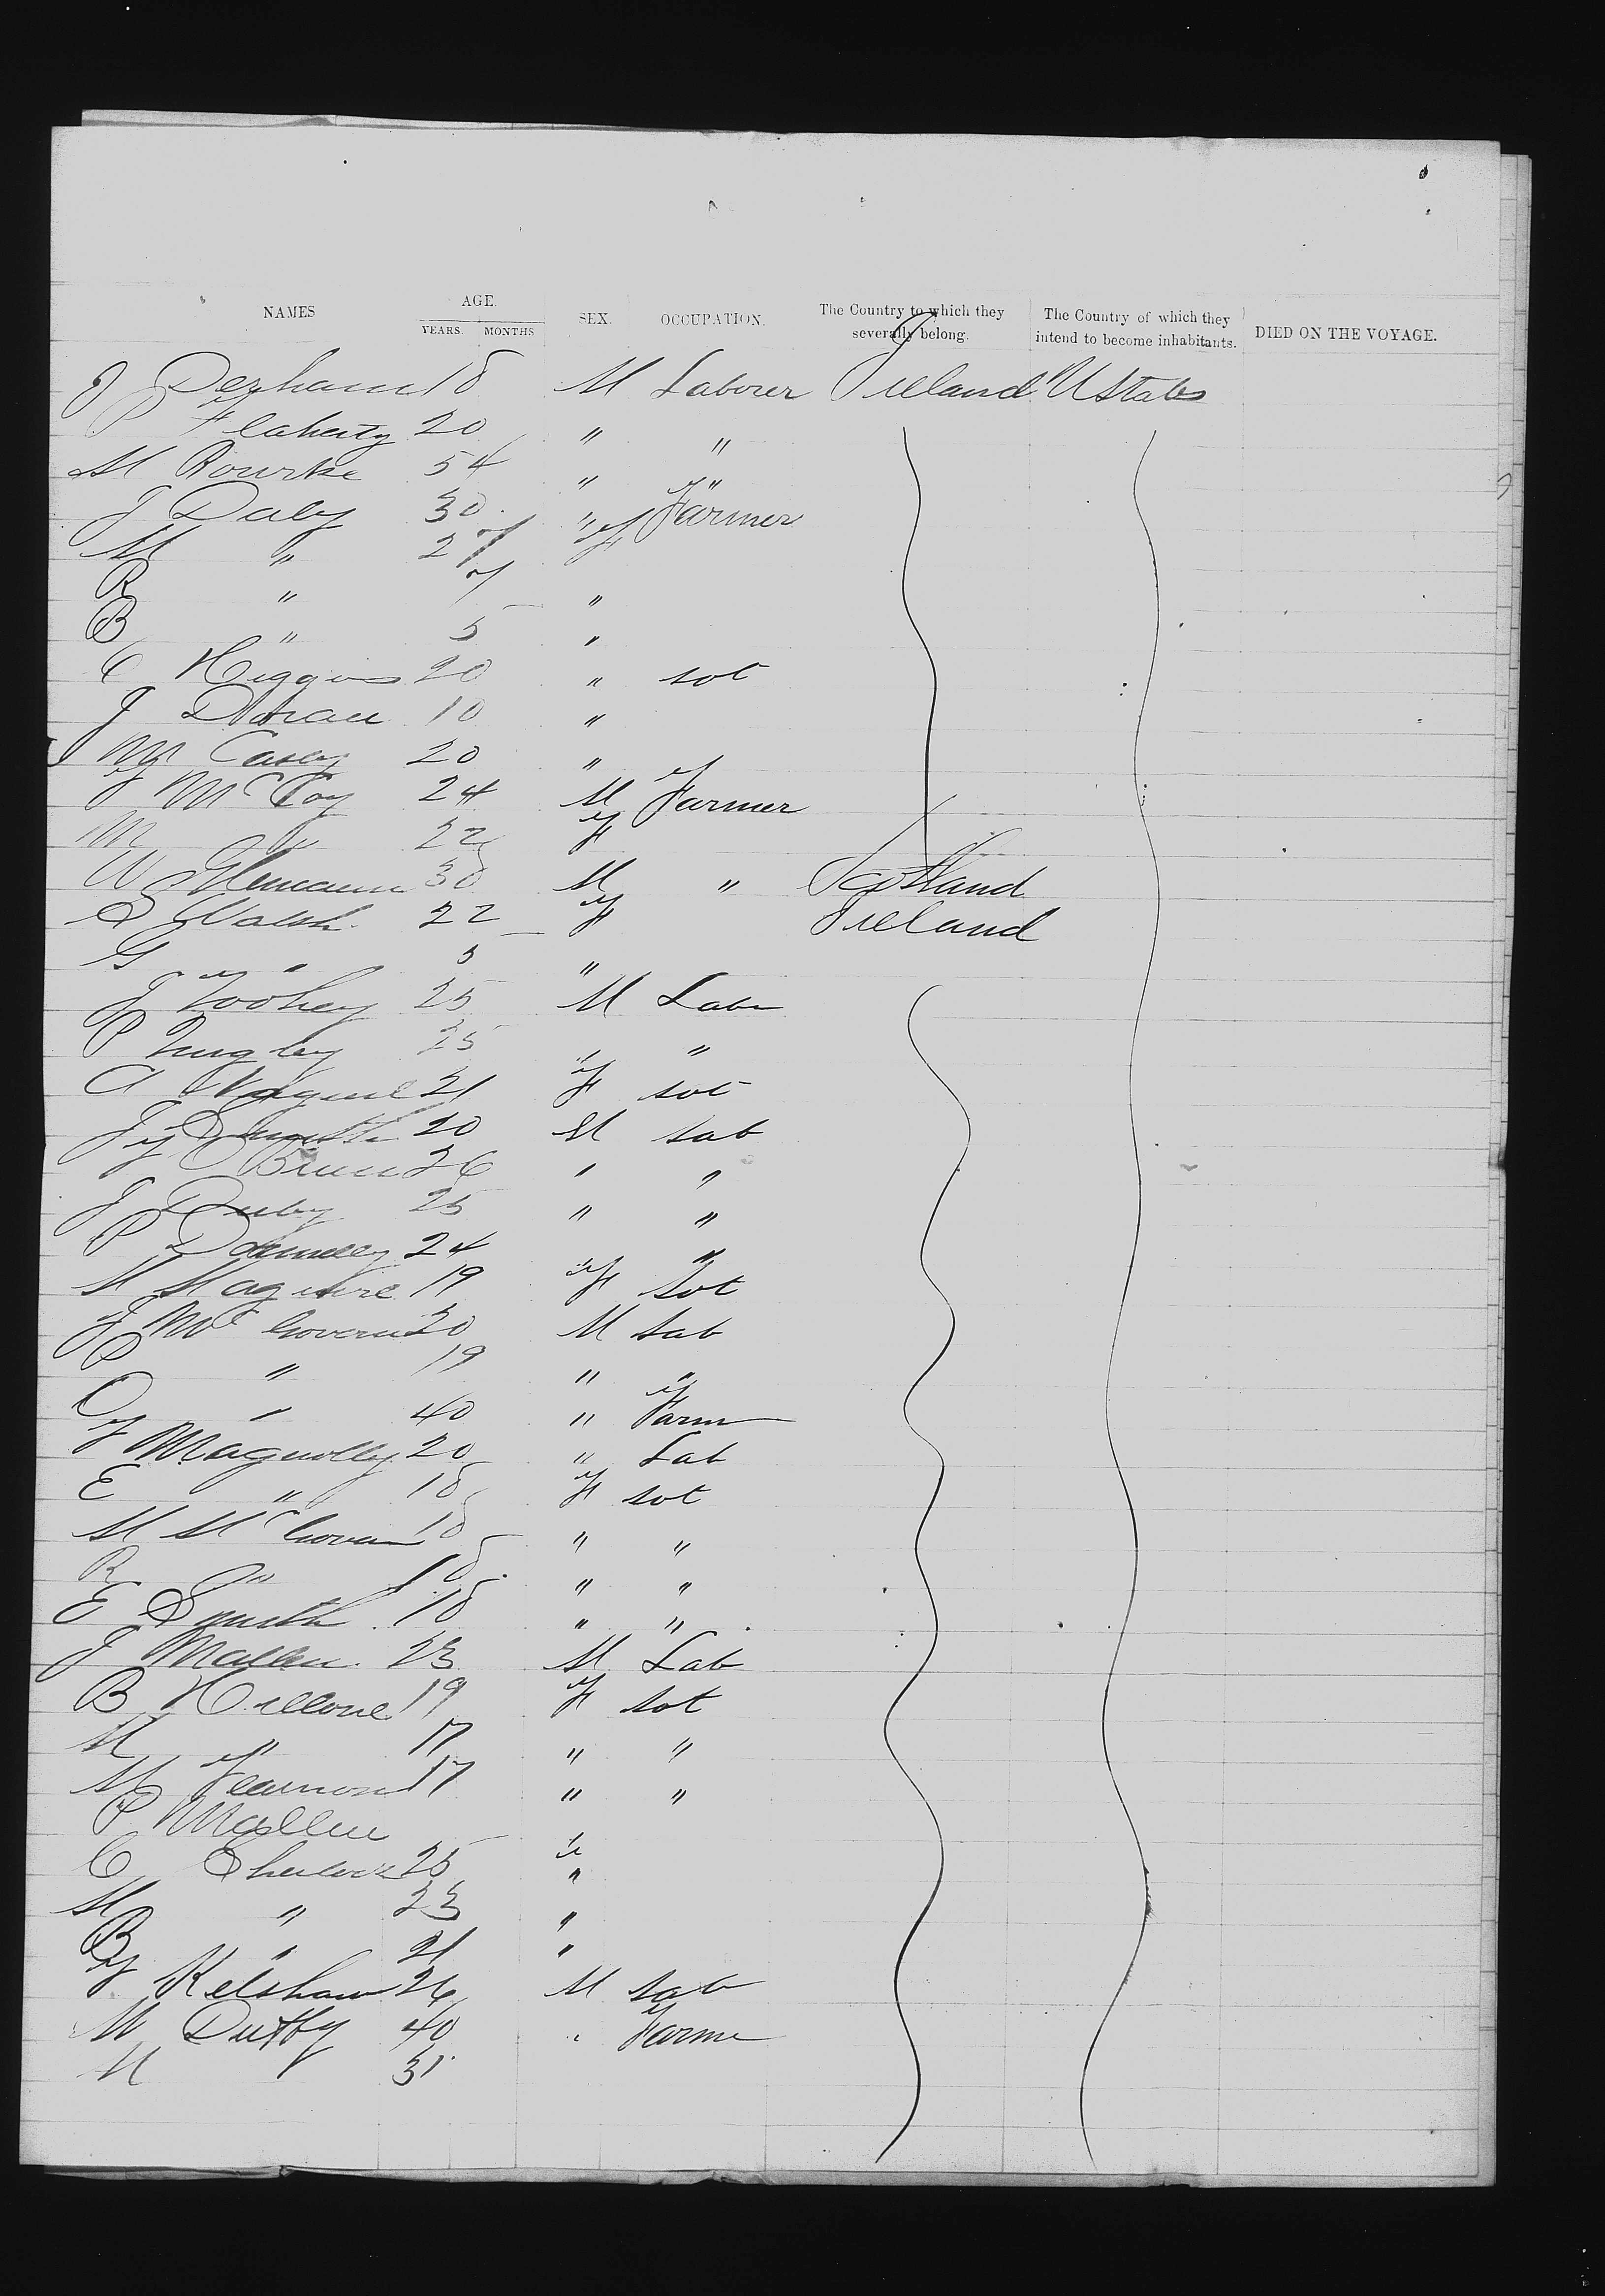 NAMES AGE. YEARS. MONTHS SEX. OCCUPATION. The Country to which they severally belong. The Country of which they intend to become inhabitants. DIED ON THE VOYAGE.
J Derham 18 M Labourer Ireland U States
P Flaherty 20 " "
M Rourke 54 " "
J Daly 30 " Farmer
M " 27 F
R " 7 "
B " 5 "
C Higgins 20 " Sot
J Doran 10 "
M Casey 20 "
J McCoy 24 M Farmer
M " 22 F
W 30 M " Scotland
S Walsh 22 F Ireland
G " 5 "
J Toohey 25 M Labr
P 25 " "
A 21 F Sot
J Smith 20 M Lab
J O'Brien 26 " "
J Duby 25 " "
P Donnelly 24 " "
M Maguire 19 F Sot
J McGovern 20 M Lab
P " 19 " "
O " 40 " Farm
J Magnolly 20 " Lab
E " 18 F Sot
M McGovern 18 " "
R " 18 " "
E Smith 18 " "
J Mallen 23 M Lab
B 19 F Sot
M " 17 " "
M 17 " "
P Mallen
C 25 "
M " 23 "
B " 21 "
J Kelshaw 26 M Lab
M Duffy 40 " Farme
M 31